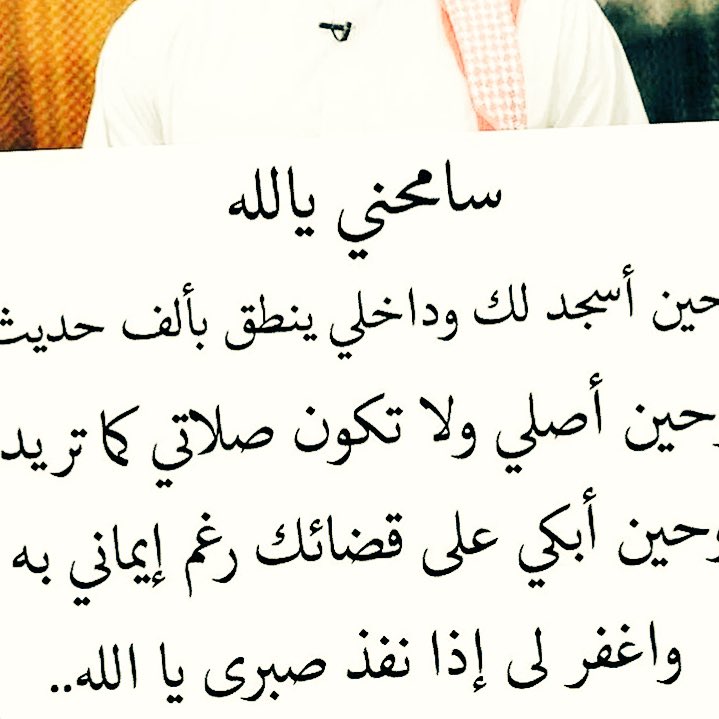 سامحني يالله
حين أسجد لك وداخلي ينطق بألف حديث
وحين أصلي ولا تكون صلاتي كما تريد
وحين أبكي على قضائك رغم إيماني به
واغفر لى إذا نفذ صبرى يا الله..